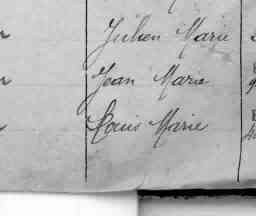 Julien Marie
Jean Marie
Louis Marie